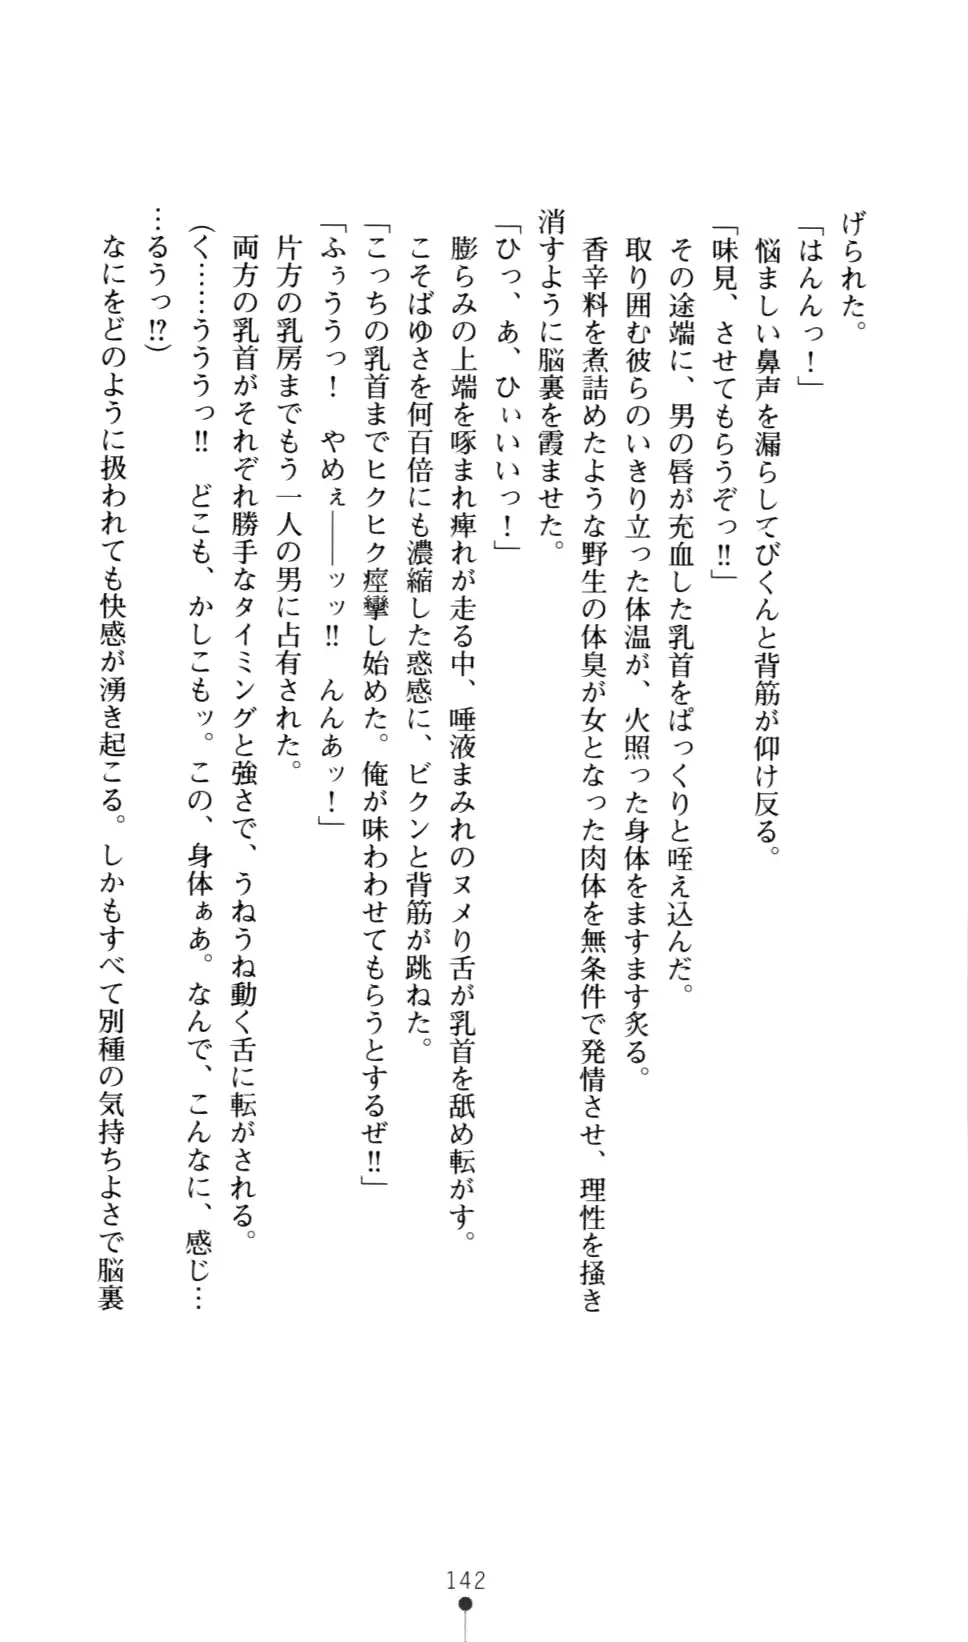 げられた。
「はんんっ！」
悩ましい鼻声を漏らしてびくんと背筋が仰け反る。
「味見、させてもらうぞっ‼」
その途端に、男の唇が充血した乳首をぱっくりと咥え込んだ。
取り囲む彼らのいきり立った体温が、火照った身体をますます炙る。
香辛料を煮詰めたような野生の体臭が女となった肉体を無条件で発情させ、理性を掻き
消すように脳裏を霞ませた。
「ひっ、あ、ひぃいいっ！」
膨らみの上端を啄まれ痺れが走る中、唾液まみれのヌメり舌が乳首を舐め転がす。
こそばゆさを何百倍にも濃縮した惑感に、ビクンと背筋が跳ねた。
「こっちの乳首までヒクヒク痙攣し始めた。俺が味わわせてもらうとするぜ‼」
「ふぅううっ！　やめぇ――ッッ‼　んんあッ！」
片方の乳房までもう一人の男に占有された。
両方の乳首がそれぞれ勝手なタイミングと強さで、うねうね動く舌に転がされる。
(く……うううっ‼　どこも、かしこもッ。この、身体ぁあ。なんで、こんなに、感じ…
…るうっ⁉)
なにをどのように扱われても快感が湧き起こる。しかもすべて別種の気持ちよさで脳裏
142